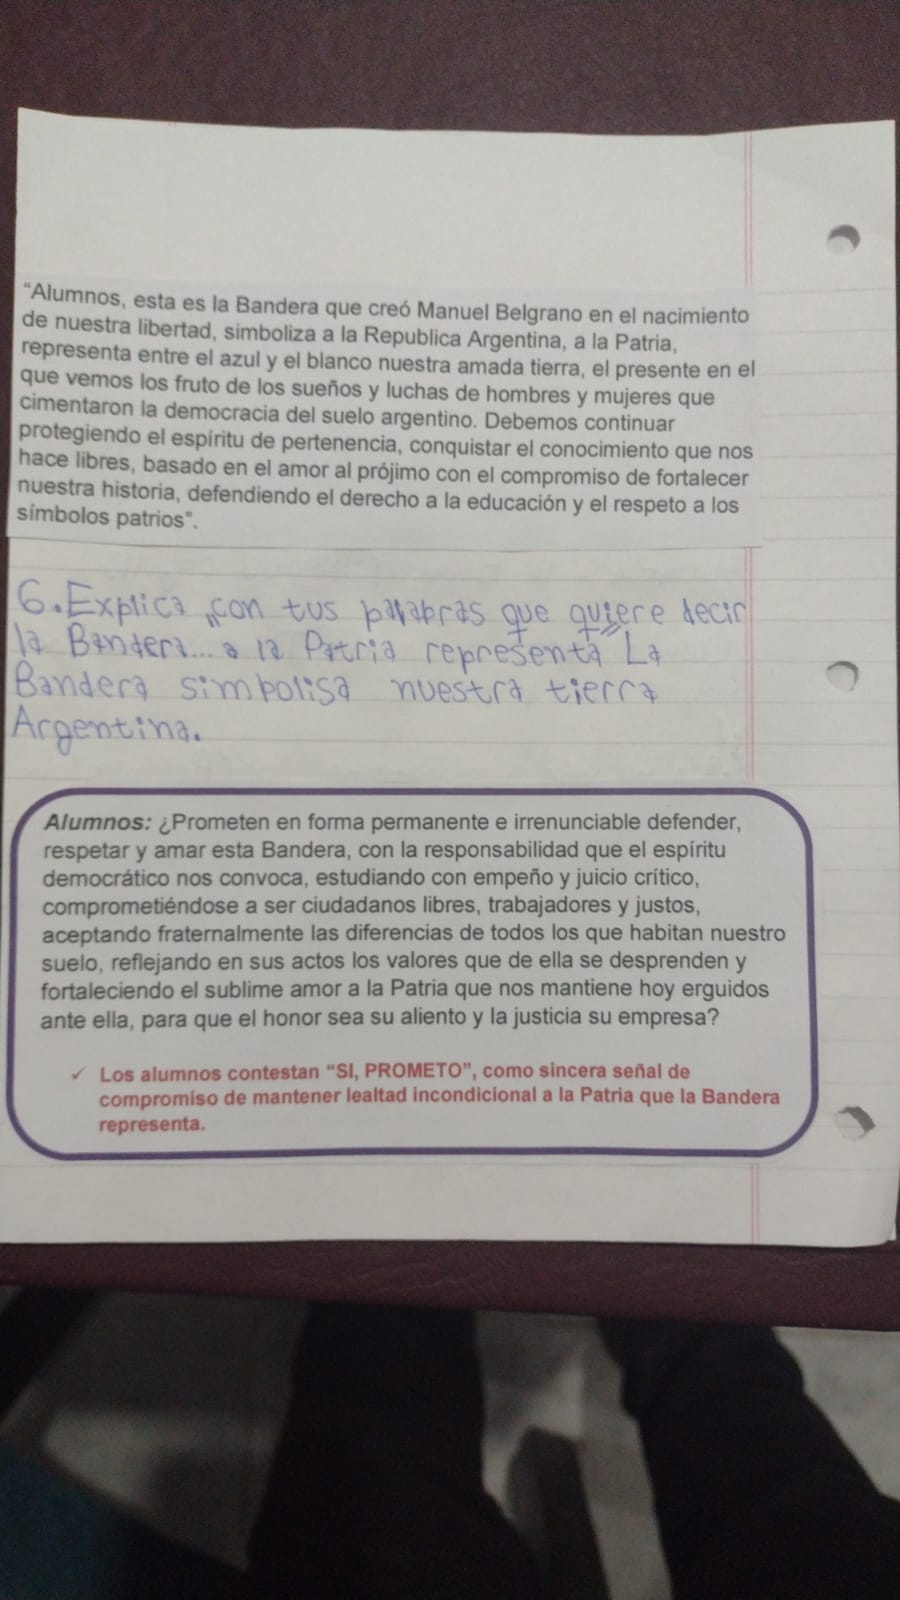 “Alumnos, esta es la Bandera que creó Manuel Belgrano en el nacimiento
de nuestra libertad, simboliza a la Republica Argentina, a la Patria,
representa entre el azul y el blanco nuestra amada tierra, el presente en el
que vemos los fruto de los sueños y luchas de hombres y mujeres que
cimentaron la democracia del suelo argentino. Debemos continuar
protegiendo el espíritu de pertenencia, conquistar el conocimiento que nos
hace libres, basado en el amor al prójimo con el compromiso de fortalecer
nuestra historia, defendiendo el derecho a la educación y el respeto a los
símbolos patrios”.
6. Explica con tus palabras que quiere decir
la Bandera... a la Patria representa La
Bandera simbolisa nuestra tierra
Argentina.
Alumnos: ¿Prometen en forma permanente e irrenunciable defender,
respetar y amar esta Bandera, con la responsabilidad que el espíritu
democrático nos convoca, estudiando con empeño y juicio crítico,
comprometiéndose a ser ciudadanos libres, trabajadores y justos,
aceptando fraternalmente las diferencias de todos los que habitan nuestro
suelo, reflejando en sus actos los valores que de ella se desprenden y
fortaleciendo el sublime amor a la Patria que nos mantiene hoy erguidos
ante ella, para que el honor sea su aliento y la justicia su empresa?
✓ Los alumnos contestan “SI, PROMETO”, como sincera señal de
compromiso de mantener lealtad incondicional a la Patria que la Bandera
representa.